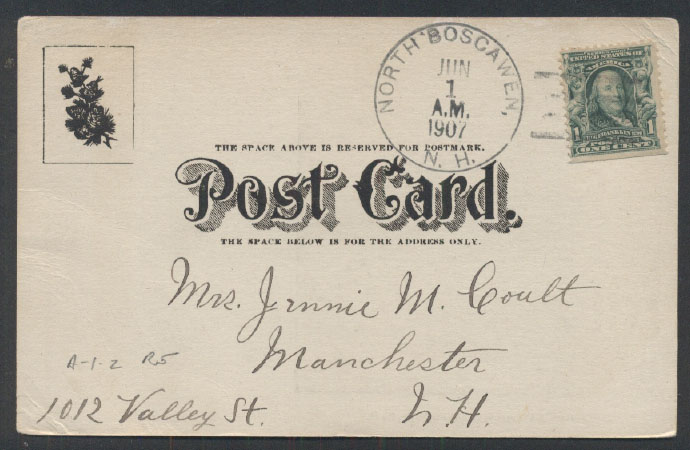 NORTH BOSCAWEN,
JUN
1
A.M.
1907
N. H.
UNITED STATES OF
AMERICA
1 1
FRANKLIN
ONE CENT
THE SPACE ABOVE IS RESERVED FOR POSTMARK.
Post Card.
THE SPACE BELOW IS FOR THE ADDRESS ONLY.
Mrs. Jennie M. Coult
A-1-2 R5
Manchester
1012 Valley St. N.H.